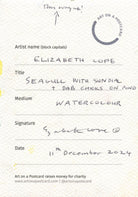 ART ON A POSTCARD
Artist name (block capitals)
ELIZABETH LOPE
Title
SEAGULL WITH SUNDIAL
+ DAB CHICKS ON POND
Medium
WATERCOLOUR
Signature
Date
11th December 2024
Art on a Postcard raises money for charity
www.artonapostcard.com | @artonapostcard